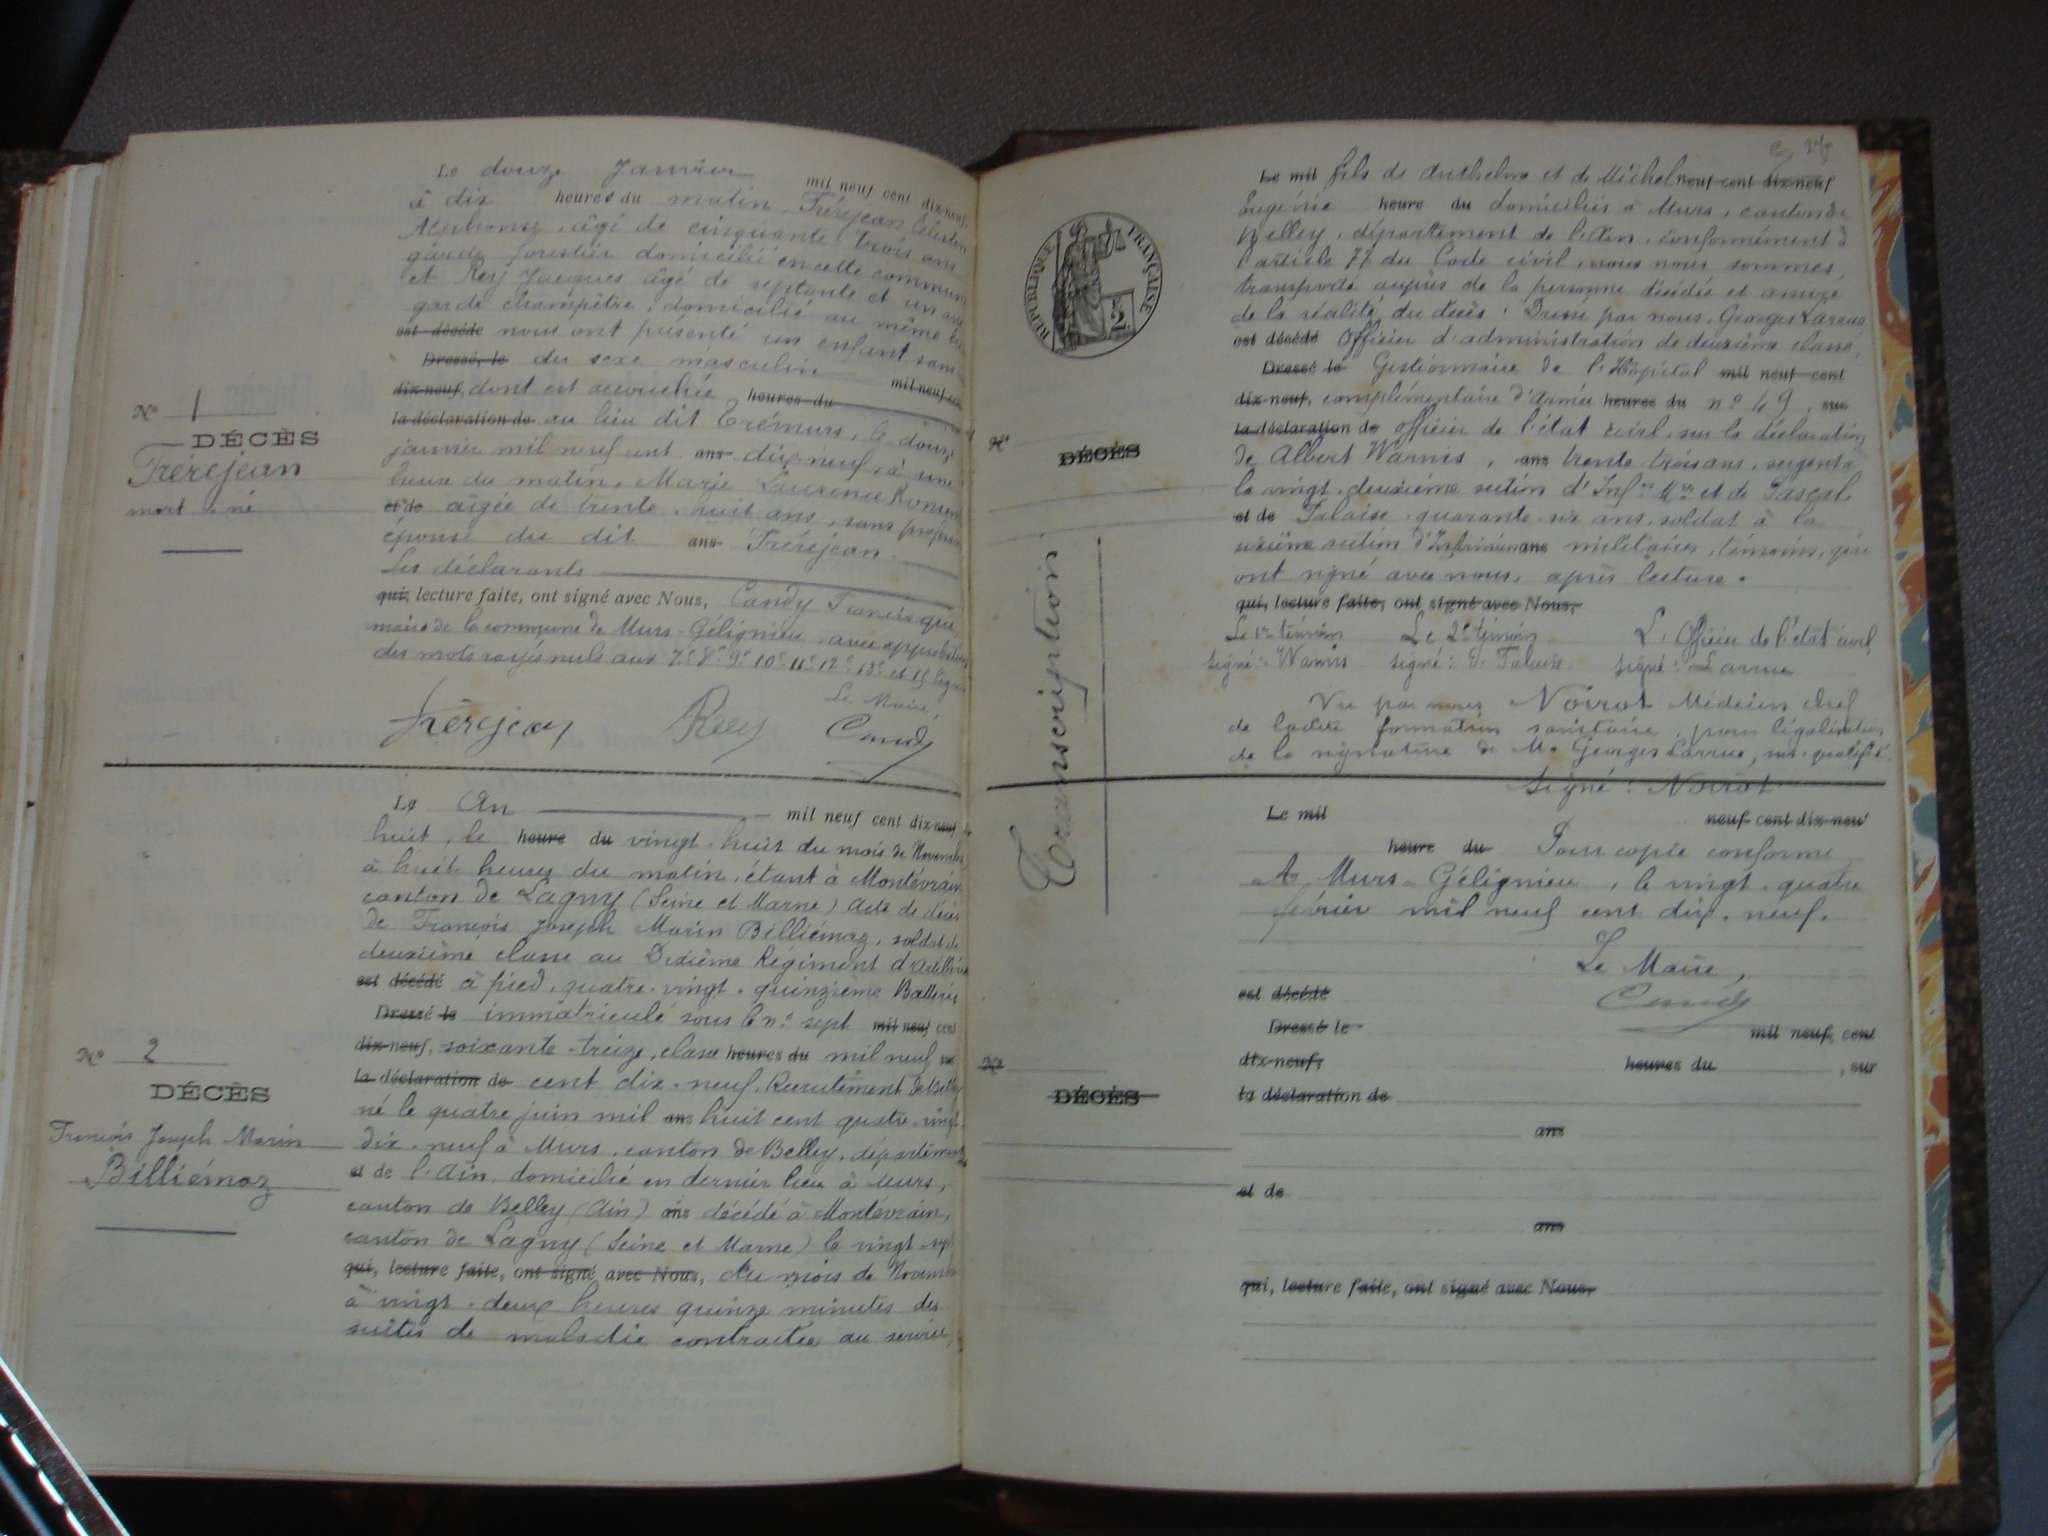 Le douze Janvier mil neuf cent dix-neuf,
à dix heures du matin, Frèrejean Célestin
Alphonse, âgé de cinquante trois ans
garde forestier domicilié en cette commune
et Rey Jacques âgé de septante et un ans
garde champêtre, domicilié au même lieu
est décédé nous ont présenté un enfant sans
Dressé, le du sexe masculin mil neuf cent
dix-neuf, dont est accouchée heures du
la déclaration de au lieu dit Crémurs, le douze
janvier mil neuf cent ans dix neuf, à une
heure du matin, Marie Laurence
et de âgée de trente huit ans, sans profession
épouse du dit ans Frèrejean
Les déclarants
qui, lecture faite, ont signé avec Nous, Candy Francisque,
maire de la commune de Murs-Gélignieu, avec approbation
des mots rayés nuls aux 7e 8e 9e 10e 11e 12e 13e et 15 lignes
Le Maire,
Frèrejean Rey Candy
No 1
DÉCÈS
Frèrejean
mort né
Le An mil neuf cent dix-neuf
huit, le heure du vingt huit du mois de Novembre
à huit heures du matin, étant à Montévrain
canton de Lagny (Seine et Marne) Acte de décès
de François Joseph Marin Billiémaz, soldat de
deuxième classe au Dixième Régiment d'Artillerie
est décédé à pied, quatre-vingt-quinzième Batterie
Dressé le immatriculé sous le no sept mil neuf cent
dix-neuf, soixante-treize, classe heures du mil neuf sur
la déclaration de cent dix-neuf, Recrutement de Belley
né le quatre juin mil ans huit cent quatre-vingt-
dix-neuf à Murs, canton de Belley, département
et de de l'Ain, domicilié en dernier lieu à Murs,
canton de Belley (Ain) ans décédé à Montévrain,
canton de Lagny (Seine et Marne) le vingt-sept
qui, lecture faite, ont signé avec Nous, du mois de Novembre
à vingt-deux heures quinze minutes des
suites de maladie contractée au service,
No 2
DÉCÈS
François Joseph Marin
Billiémaz
Le mil fils de Anthelme et de Michel neuf cent dix-neuf
Eugénie heure du domiciliés à Murs, canton de
Belley, département de l'Ain, conformément à
l'article 77 du Code civil, nous nous sommes
transporté auprès de la personne décédée et assuré
de la réalité du décès. Dressé par nous, Georges Larrue
est décédé Officier d'administration de deuxième classe,
Dressé le Gestionnaire de l'Hôpital mil neuf cent
dix-neuf, complémentaire d'Armée heures du no 49, sur
la déclaration de officier de l'état civil, sur la déclaration
de Albert Warnis, ans trente trois ans, sergent à
la vingt-deuxième section d'Infrs Mres et de Pascal
et de Falaise, quarante-six ans, soldat à la
sixième section d'Infirmiers ans militaires, témoins, qui
ont signé avec nous, après lecture.
qui, lecture faite, ont signé avec Nous,
Le 1er témoin Le 2e témoin L'Officier de l'état civil,
signé: Warnis signé: P. Falaise signé: Larrue
Vu par nous Noirot Médecin chef
de ladite formation sanitaire, pour légalisation
de la signature de M. Georges Larrue, sus-qualifié
Signé: Noirot
RÉPUBLIQUE FRANÇAISE
No
DÉCÈS
Transcription
Le mil neuf cent dix-neuf
heure du Pour copie conforme
A Murs-Gélignieu, le vingt-quatre
février mil neuf cent dix-neuf.
Le Maire,
est décédé Candy
Dressé le mil neuf cent
dix-neuf, heures du , sur
la déclaration de
ans
et de
ans
qui, lecture faite, ont signé avec Nous,
No
DÉCÈS